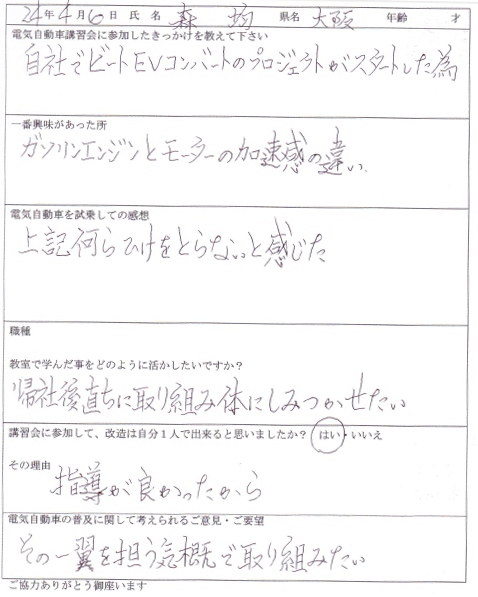 24年4月6日 氏名 森 均 県名 大阪 年齢 才
電気自動車講習会に参加したきっかけを教えて下さい
自社でビートEVコンバートのプロジェクトがスタートした為
一番興味があった所
ガソリンエンジンとモーターの加速感の違い.
電気自動車を試乗しての感想
上記何らひけをとらないと感じた
職種
教室で学んだ事をどのように活かしたいですか？
帰社後直ちに取り組み体にしみつかせたい
講習会に参加して、改造は自分１人で出来ると思いましたか？ はい・いいえ
その理由
指導が良かったから
電気自動車の普及に関して考えられるご意見・ご要望
その一翼を担う気概で取り組みたい
ご協力ありがとう御座います